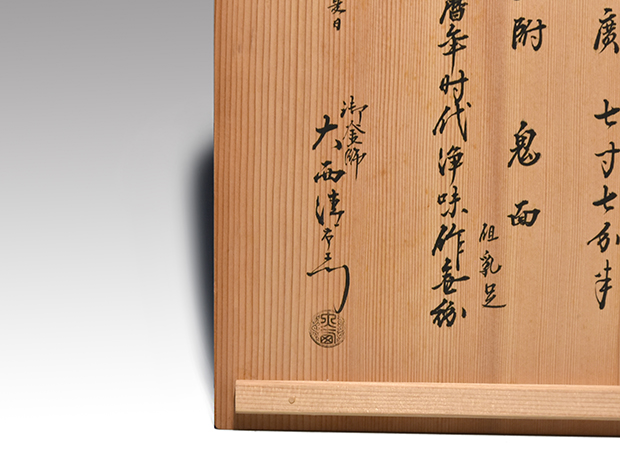 廣 七寸七分半
附 鬼面
乳足
暦年时代浄味作無紛
御釜師
大西清右衛門
日
大西